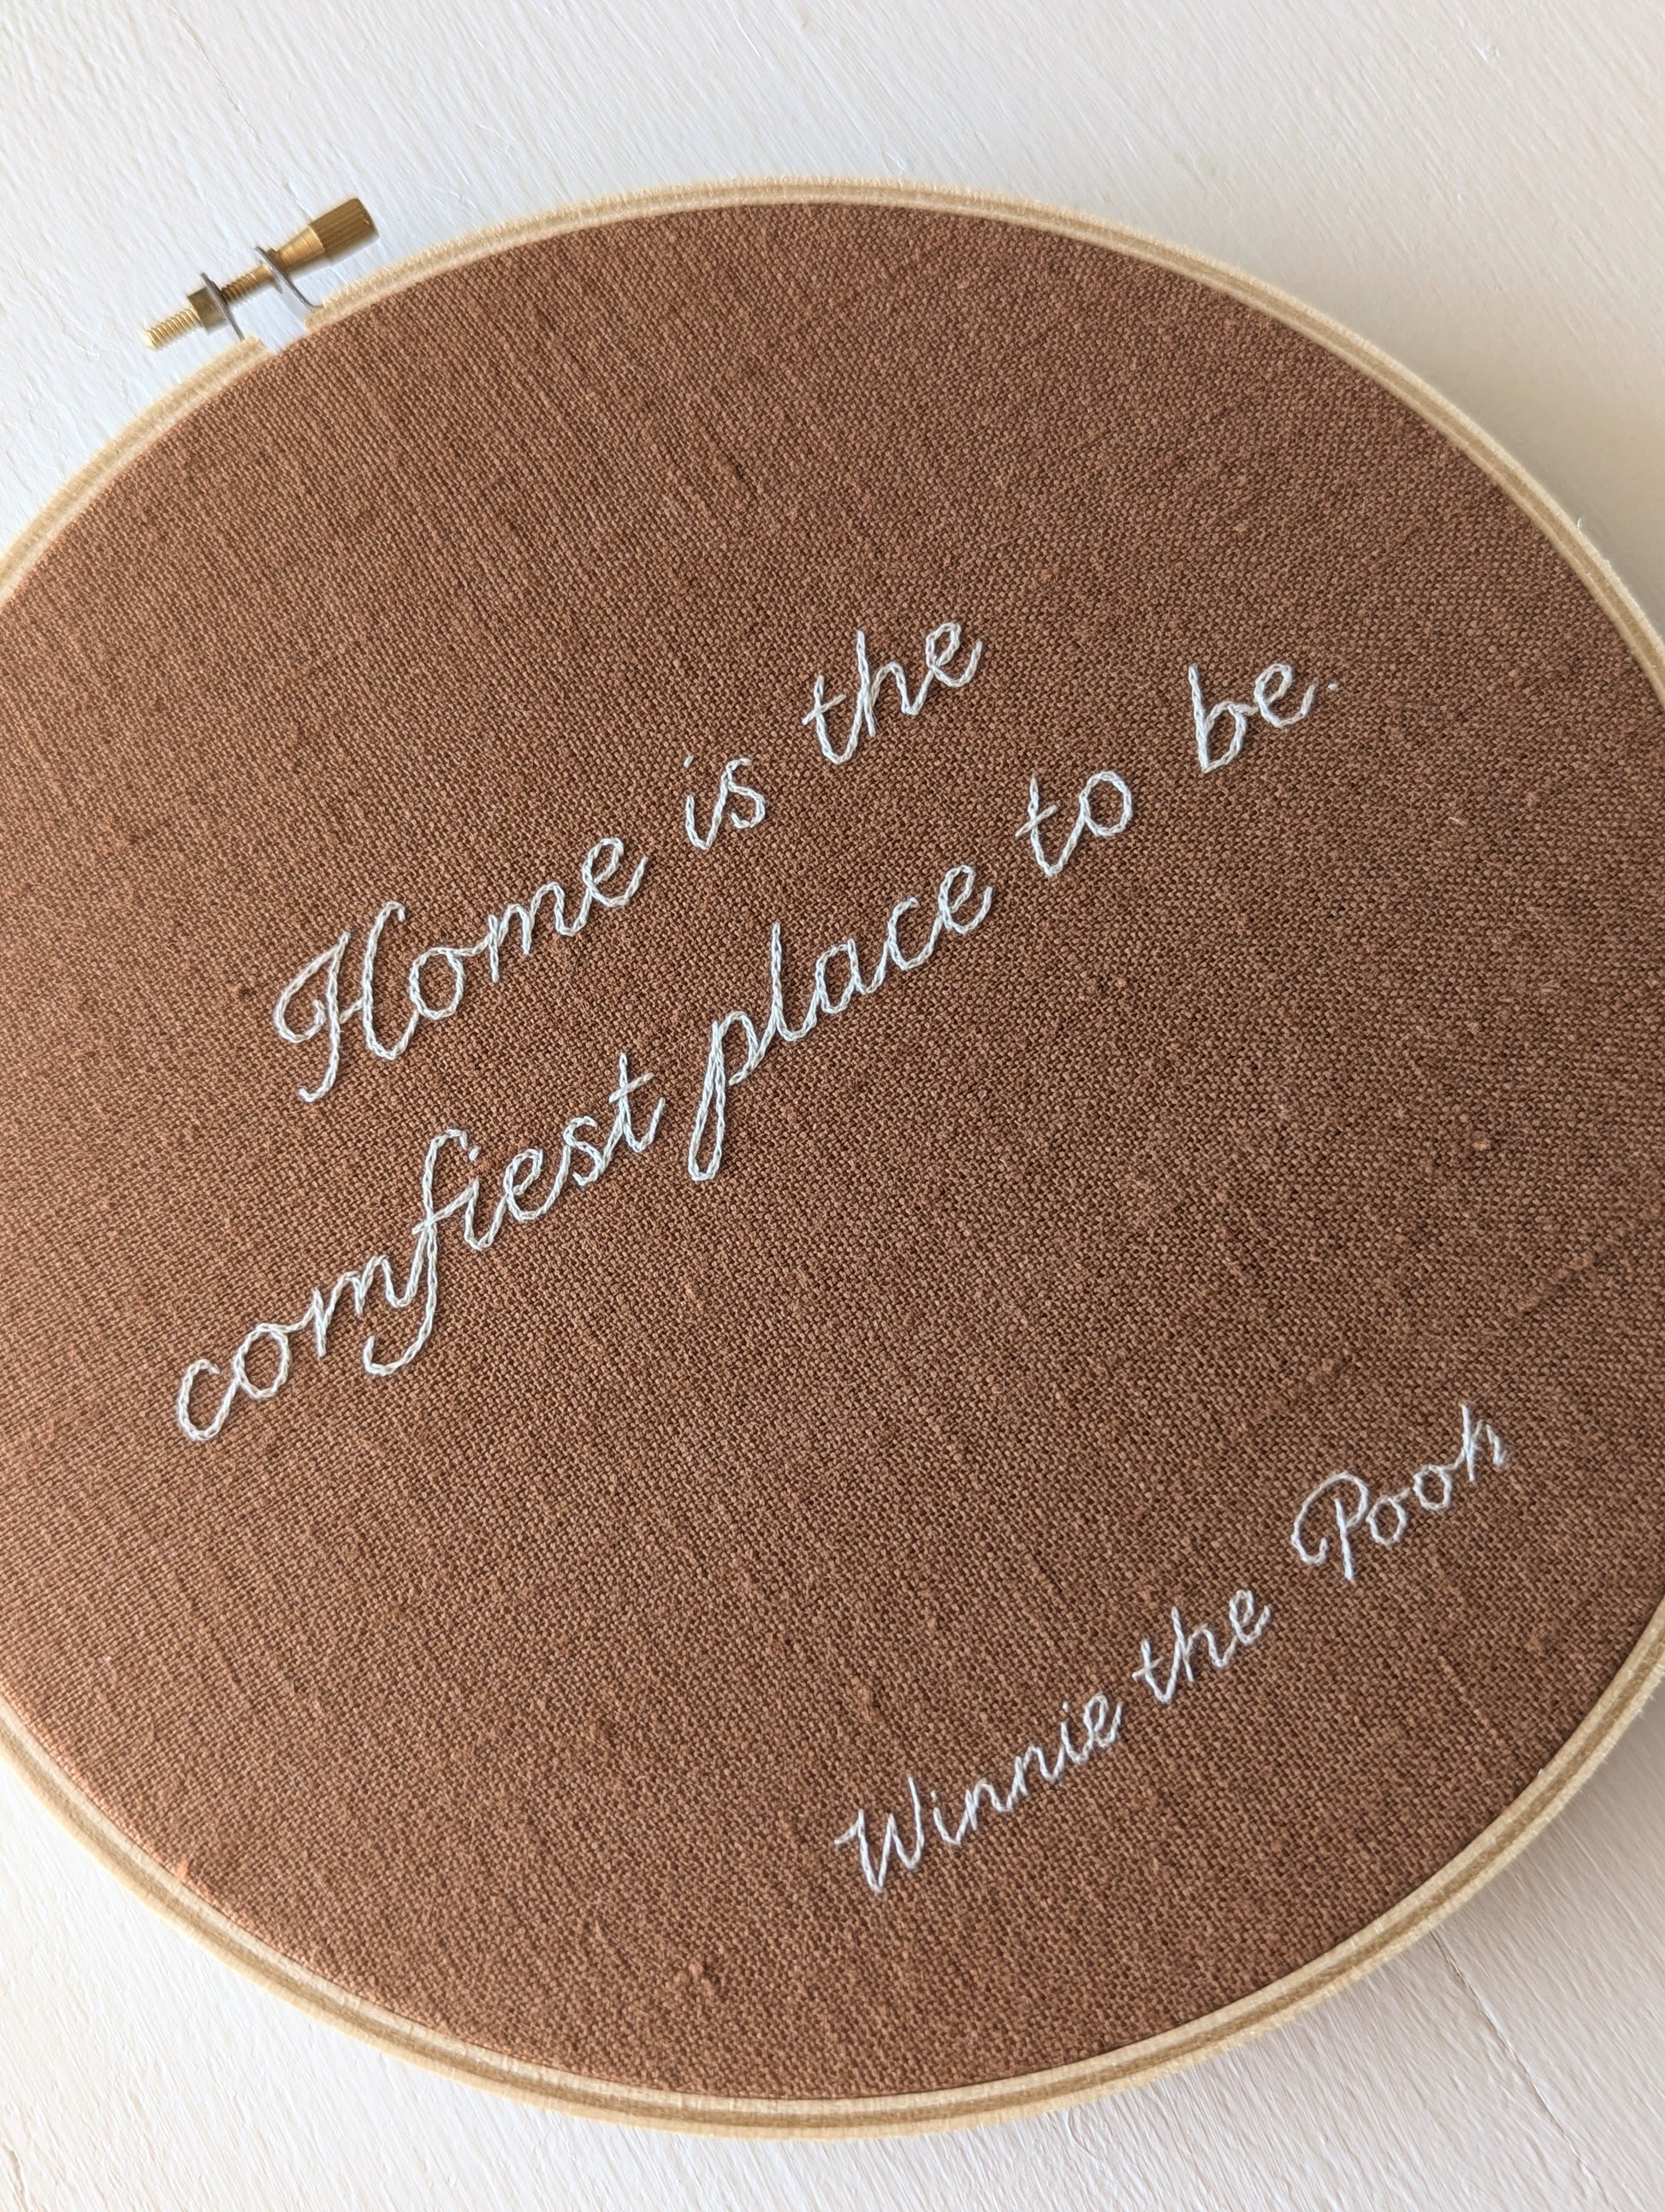 Home is the
comfiest place to be.
Winnie the Pooh